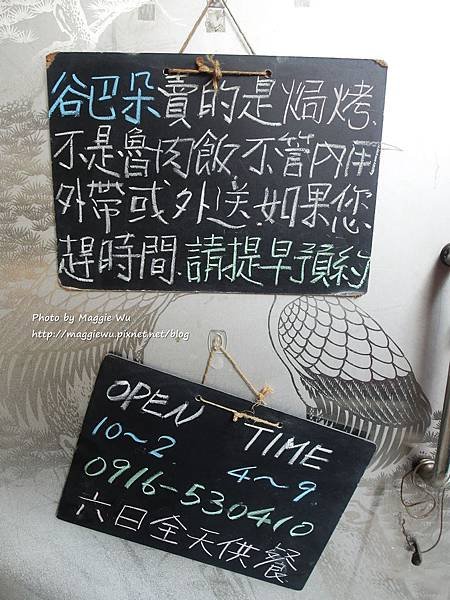 谷巴朵賣的是焗烤.
不是魯肉飯.不管內用
外帶或外送.如果您
趕時間.請提早預約
Photo by Maggie Wu
http://maggiewu.pixnet.net/blog
OPEN TIME
10～2 4～9
0916-530410
六日全天供餐